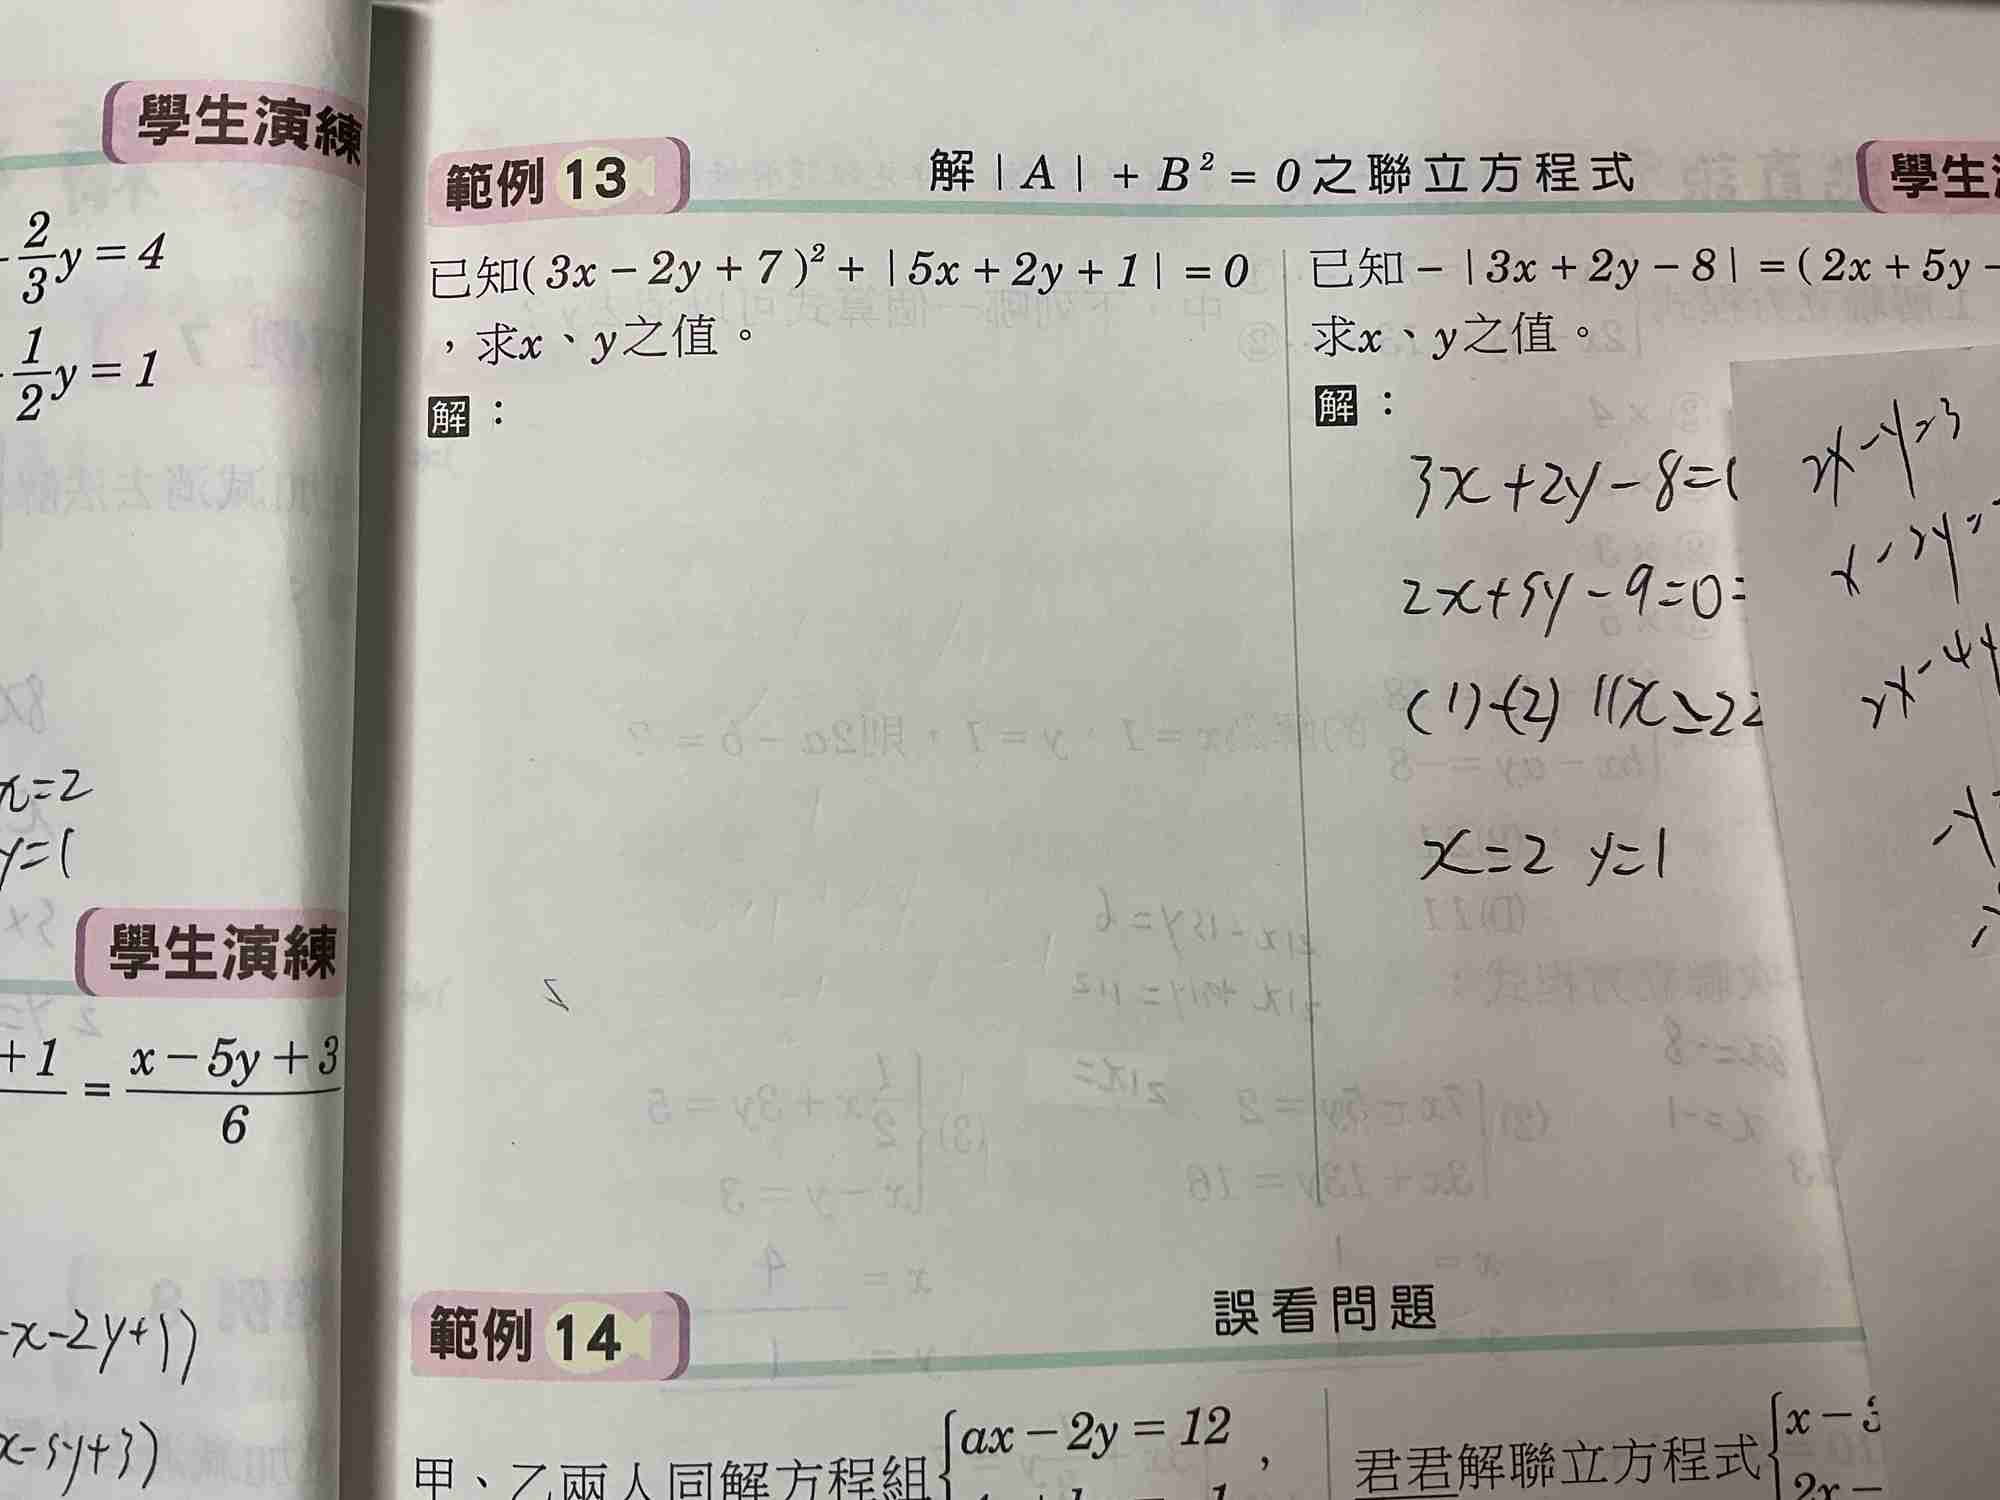 學生演練
2/3 y = 4
1/2 y = 1
x=2
y=1
學生演練
+1 = x-5y+3 / 6
-x-2y+1)
x-5y+3)
範例 13 解 | A | + B² = 0 之聯立方程式
已知(3x-2y+7)²+|5x+2y+1|=0
，求x、y之值。
解：
學生
已知-|3x+2y-8|=(2x+5y-
求x、y之值。
解：
3x+2y-8=
2x+5y-9=0=
(1)-(2) 11x=22
x=2 y=1
2x-y=3
x-2y=
2x-4y
-y
範例 14 誤看問題
甲、乙兩人同解方程組{ax-2y=12，
君君解聯立方程式{x-3
2x-